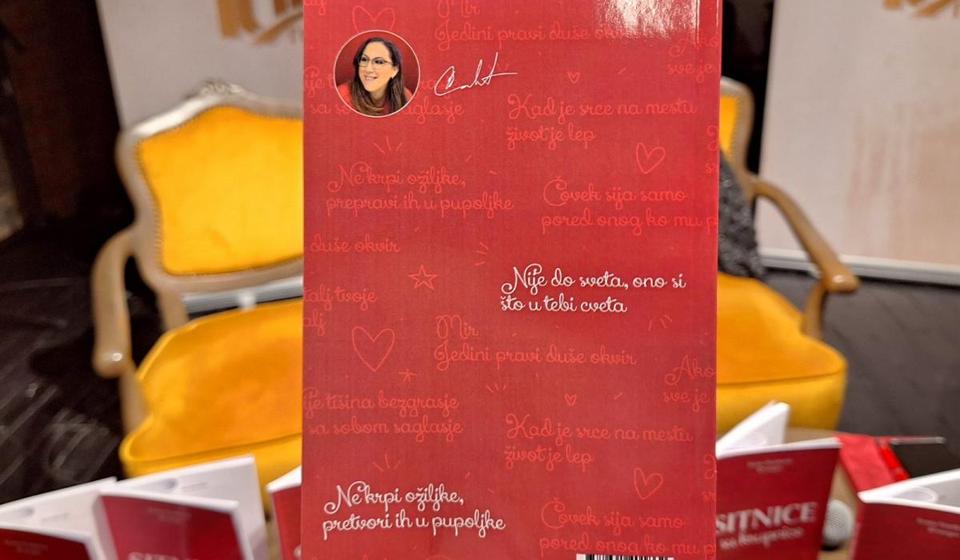 Mir
Jedini pravi duše okvir
sa
saglasje
Kad je srce na mestu
život je lep
sve je
Ne krpi ožiljke,
prepravi ih u pupoljke
Čovek sija samo
pored onog ko mu p
duše okvir
Nije do sveta, ono si
što u tebi cveta
tvoje
Mir
Jedini pravi duše okvir
Ako
sve je
je tišina bezgrasje
sa sobom saglasje
Kad je srce na mestu
život je lep
Ne krpi ožiljke,
pretvori ih u pupoljke
Čovek sija samo
pored onog ko mu p
SITNICE